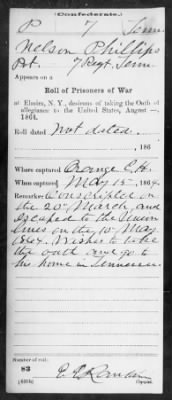 (Confederate.)
P 7 Tenn.
Nelson Phillips
Pvt. 7 Regt. Tenn.
Appears on a
Roll of Prisoners of War
at Elmira, N. Y., desirous of taking the Oath of
allegiance to the United States, August —,
1864.
Roll dated Not dated.
, 186
Where captured Orange C.H.
When captured May 15, 1864.
Remarks: Conscripted on
the 20th March, and
escaped to the Union
lines on the 15th May
1864. Wishes to take
the oath and go to
his home in Tennessee.
Number of roll:
83
Copyist.